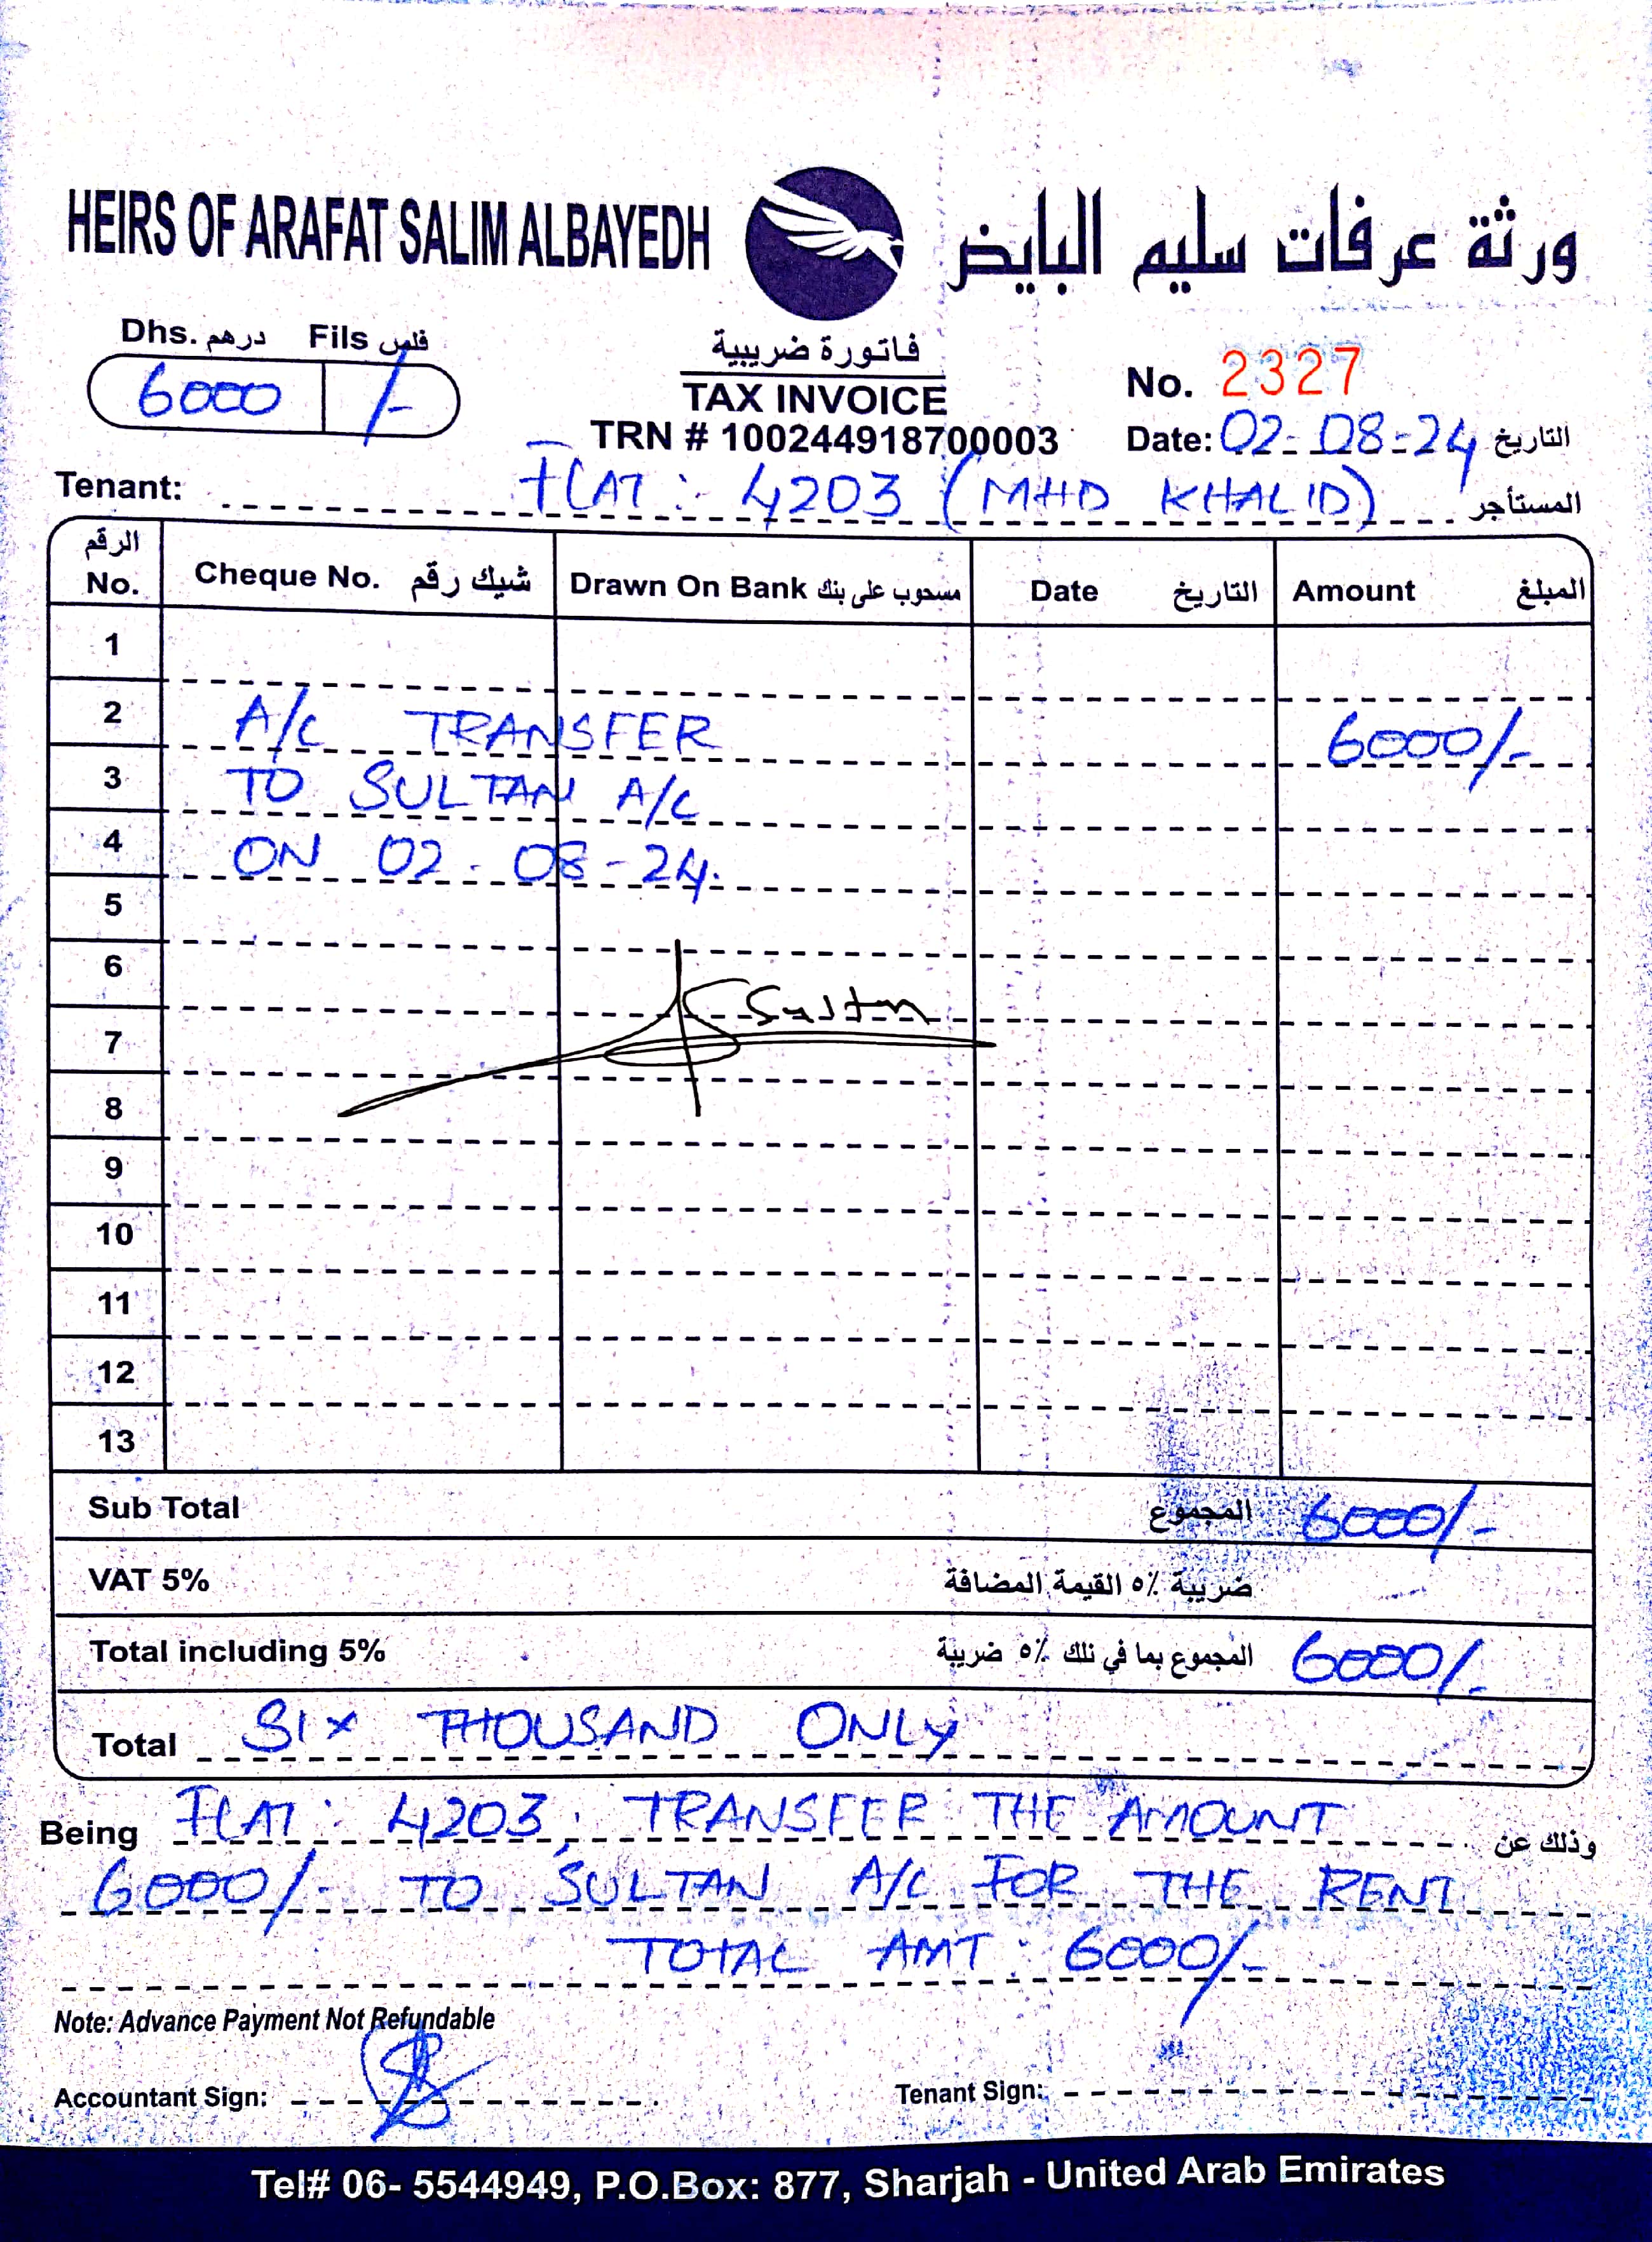 HEIRS OF ARAFAT SALIM ALBAYEDH ورثة عرفات سليم البايض
Dhs. درهم Fils فلس
6000 /-
فاتورة ضريبية
TAX INVOICE
TRN # 100244918700003
No. 2327
Date: 02-08-24 التاريخ
Tenant: FLAT: 4203 (MHD KHALID) المستأجر
الرقم No. Cheque No. شيك رقم Drawn On Bank مسحوب على بنك Date التاريخ Amount المبلغ
1
2 A/C TRANSFER 6000/-
3 TO SULTAN A/C
4 ON 02-08-24.
5
6
Sultan
7
8
9
10
11
12
13
Sub Total المجموع 6000/-
VAT 5% ضريبة ٥٪ القيمة المضافة
Total including 5% المجموع بما في ذلك ٥٪ ضريبة 6000/-
Total SIX THOUSAND ONLY
Being FLAT: 4203, TRANSFER THE AMOUNT وذلك عن
6000/- TO SULTAN A/C FOR THE RENT
TOTAL AMT: 6000/-
Note: Advance Payment Not Refundable
Accountant Sign: Tenant Sign:
Tel# 06- 5544949, P.O.Box: 877, Sharjah - United Arab Emirates